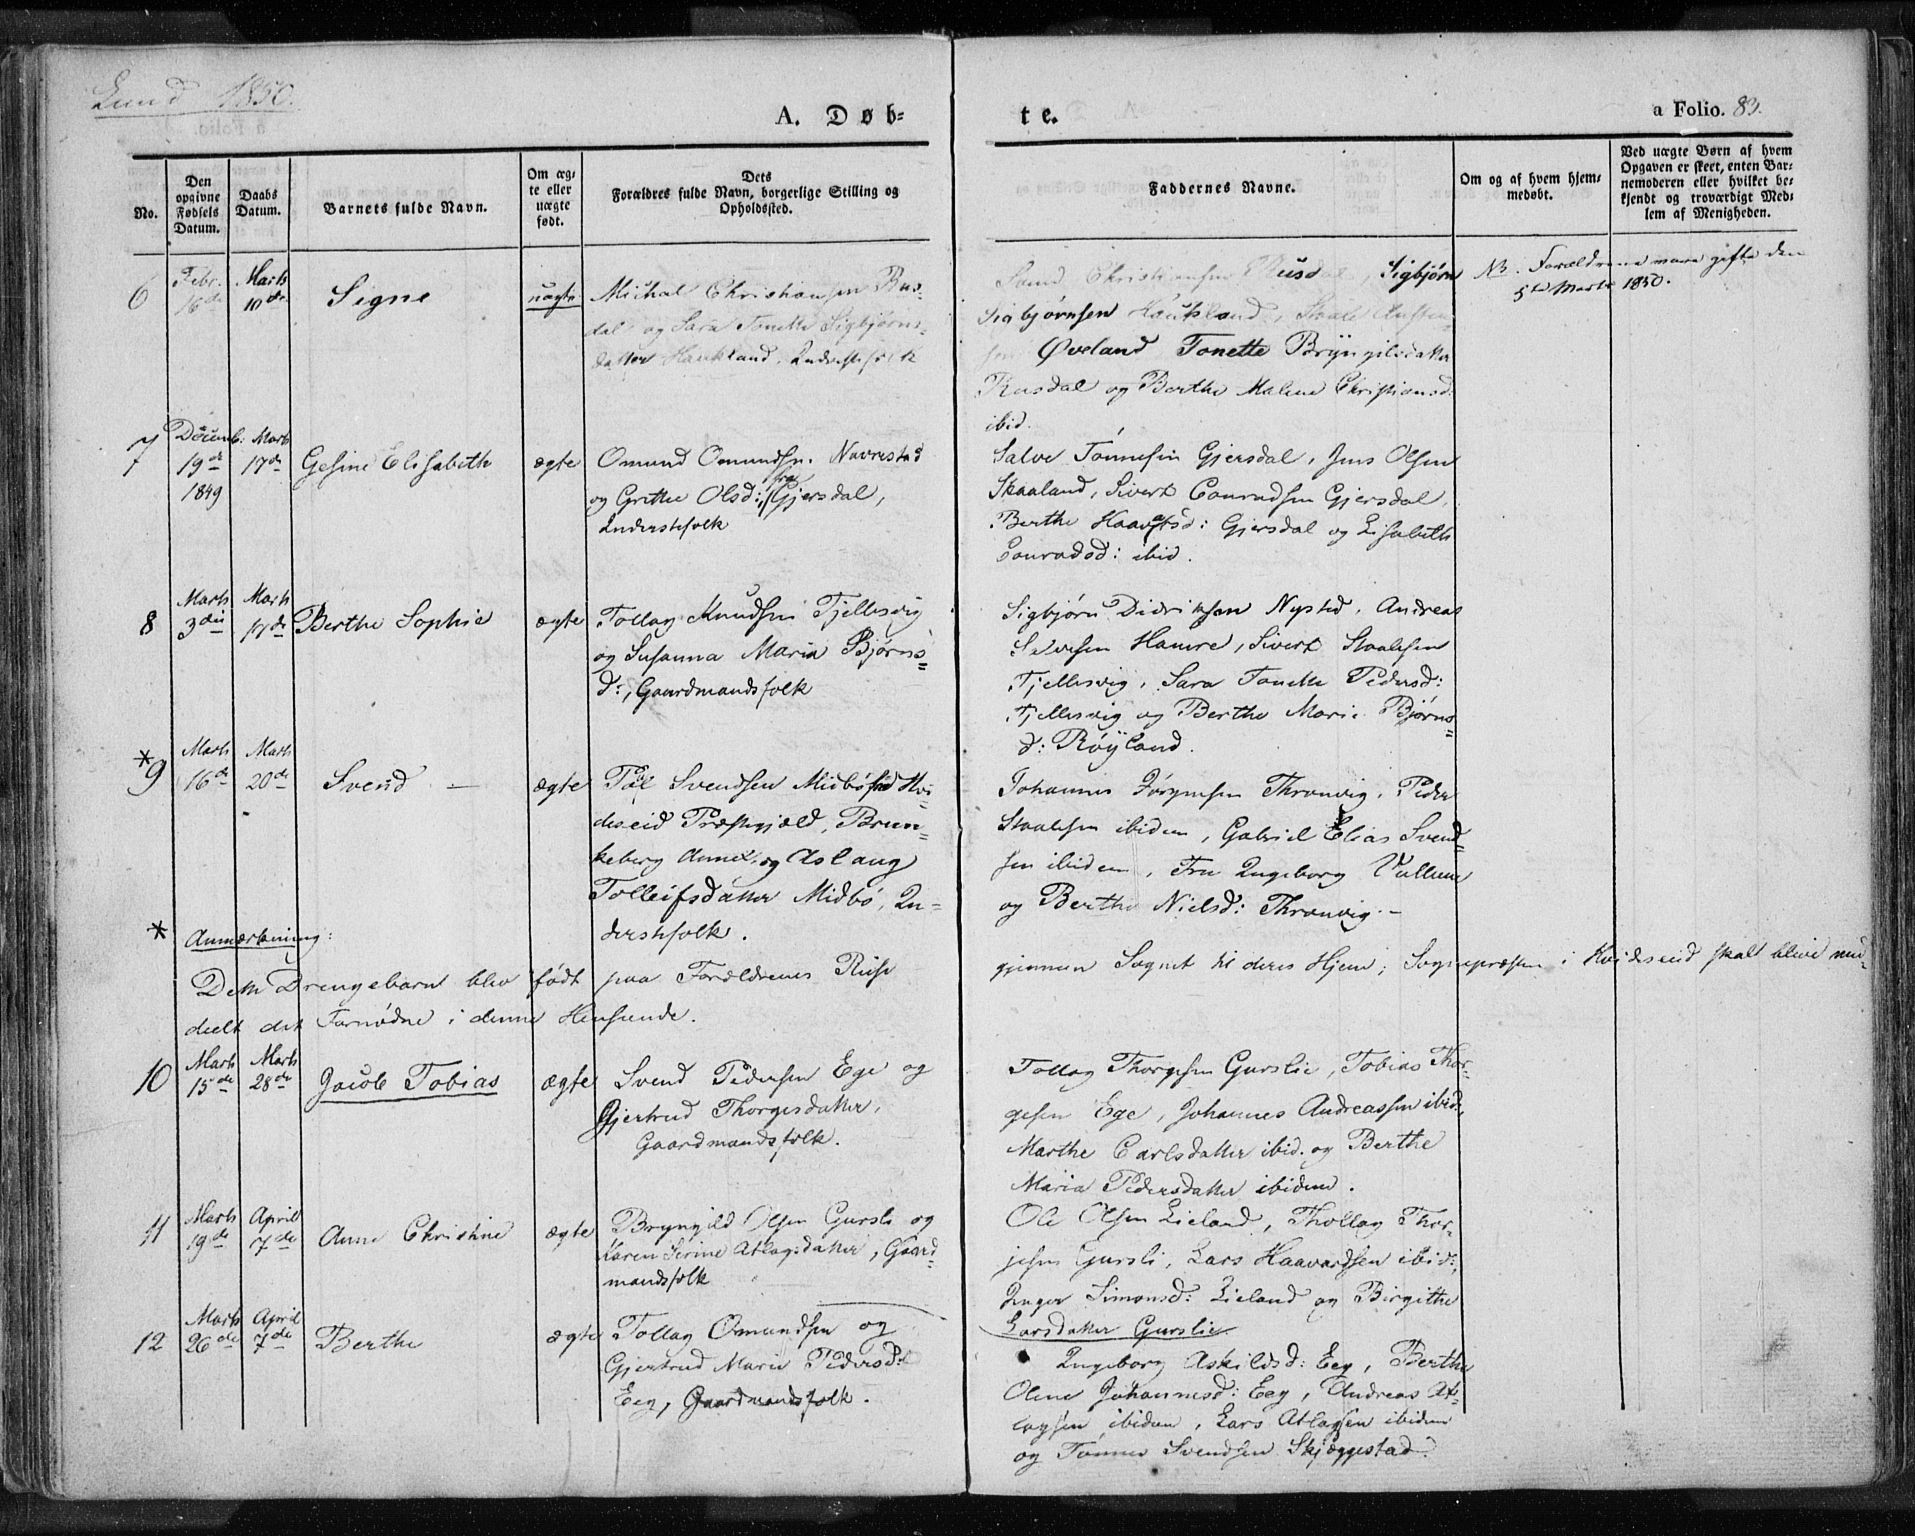 Lund 1850.
A. Døb-
te.
a Folio. 83.
No.
Den opgivne Fødsels Datum.
Daabs Datum.
Barnets fulde Navn.
Om ægte eller uægte født.
Dets Forældres fulde Navn, borgerlige Stilling og Opholdssted.
Faddernes Navne.
Om og af hvem hjemmedøbt.
Ved uægte Børn af hvem Opgaven er skeet, enten Barnemoderen eller hvilket bekjendt og troværdigt Medlem af Menigheden.
6
Febr. 16de
Marts 10de
Signe
uægte
Michal Christiansen Rus-
dal og Sara Tonette Sigbjørns-
datter Haukland, Inderstefolk
Svend Christiansen Rusdal, Sigbjørn
Sigbjørnsen Haukland, Staale
Øveland Tonette Bryngilsdatter
Rusdal og Berthe Malene Christiansd:
ibid.
NB. Forældrene vare gifte den
5te Marts 1850.
7
Decemb: 19de 1849
Marts 17de
Gesine Elisabeth
ægte
Omund Omundsn. Navrestad
og Grethe Olsd: fra Gjersdal,
Inderstefolk
Salve Tønnesen Gjersdal, Jens Olsen
Skaaland, Sivert Conradsen Gjersdal,
Berthe Haavatsd: Gjersdal og Lisabeth
Conradsd: ibid.
8
Marts 3die
Marts 17de
Berthe Sophie
ægte
Tollag Knudsen Fjellesvig
og Susanna Maria Bjørns-
d:, Gaardmandsfolk
Sigbjørn Didriksen Nysted, Andreas
Salvesen Hamre, Sivert Staalesen
Fjellesvig, Sara Tonette Pedersd:
Fjellesvig og Berthe Marie Bjørns-
d: Røyland.
*9
Marts 16de
Marts 20de
Svend -
ægte
Svendsen Midbø fra Hvi-
deseid Præstegjæld, Brun-
keberg Annex og Aslaug
Tolleifsdatter Midbø, In-
derstefolk.
Johannes Jørgensen Thronvig, Peder
Staalesen ibidem, Gabriel Elias Svend-
sen ibidem, Fru Ingeborg
og Berthe Nielsd: Thronvig. -
* Anmærkning:
Dette Drengebarn blev født paa Forældrenes Reise gjennem Sognet til deres Hjem; Sognepræsten i Hvideseid skal blive med-
deelt det Fornødne i denne Henseende.
10
Marts 15de
Marts 28de
Jacob Tobias
ægte
Svend Pedersen Ege og
Gjertrud Thorgesdatter,
Gaardmandsfolk.
Tollag Thorgesen Gurslie, Tobias Thor-
gesen Ege, Johannes Andreassen ibid.,
Marthe Carlsdatter ibid. og Berthe
Maria Pedersdatter ibidem.
11
Marts 19de
April 7de
Anne Christine
ægte
Bryngild Olsen Gursli og
Karen Serine Atlagsdatter, Gaard-
mandsfolk
Ole Olsen Lieland, Thollag Thor-
jesen Gursli, Lars Haavardsen ibid:,
Inger Simonsd: Lieland og Birgithe
Larsdatter Gurslie
12
Marts 26de
April 7de
Berthe
ægte
Tollag Omundsen og
Gjertrud Marie Pedersd:
Eeg, Gaardmandsfolk.
Ingeborg Askildsd: Eeg, Berthe
Oline Johannesd: Eeg, Andreas At-
lagsen ibidem, Lars Atlagsen ibidem
og Tønnes Svendsen Skjæggestad.